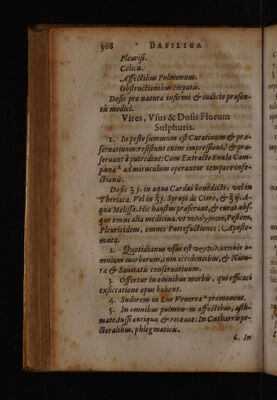 308 BASILICA
Pleurisi.
Colica.
Affectibus Pulmonum.
Obstructionibus Hepatis.
Dosis pro natura infirmi & iudicio præsen-
tis medici.
Vires, Vsus & Dosis Florum
Sulphuris.
1. In peste summum est Curatiuum & præ-
seruatiuum: resistunt enim impressioni, & præ-
seruant à putredine: Cum Extracto Enulæ Cam-
panæ ad miraculum operantur tempore infe-
ctionis.
Dosis ʒ j. in aqua Cardui benedicti, vel in
Theriaca. Vel in ℥j. Syrupi de Citro, &
qua Melissæ. Hic haustus præseruat, & curat absq́;
que omni alia medicina,
Pestem,
Pleuritidem, omnes Putrefactiones, Aposte-
mata.
2. Quotidianus vsus est
o-
mnium morborum, cum accidentibus, & Natu-
ra & Sanitatis conseruatiuum.
3. Offertur in omnibus morbis, qui efficaci
exsiccatione opus habent.
4. Sudorem in Lue Venerea promouent.
5. In omnibus pulmonum affectibus, asth-
mate, tussi antiqua & recente: In Catharris pe-
ctoralibus, phlegmaticis.
6. In